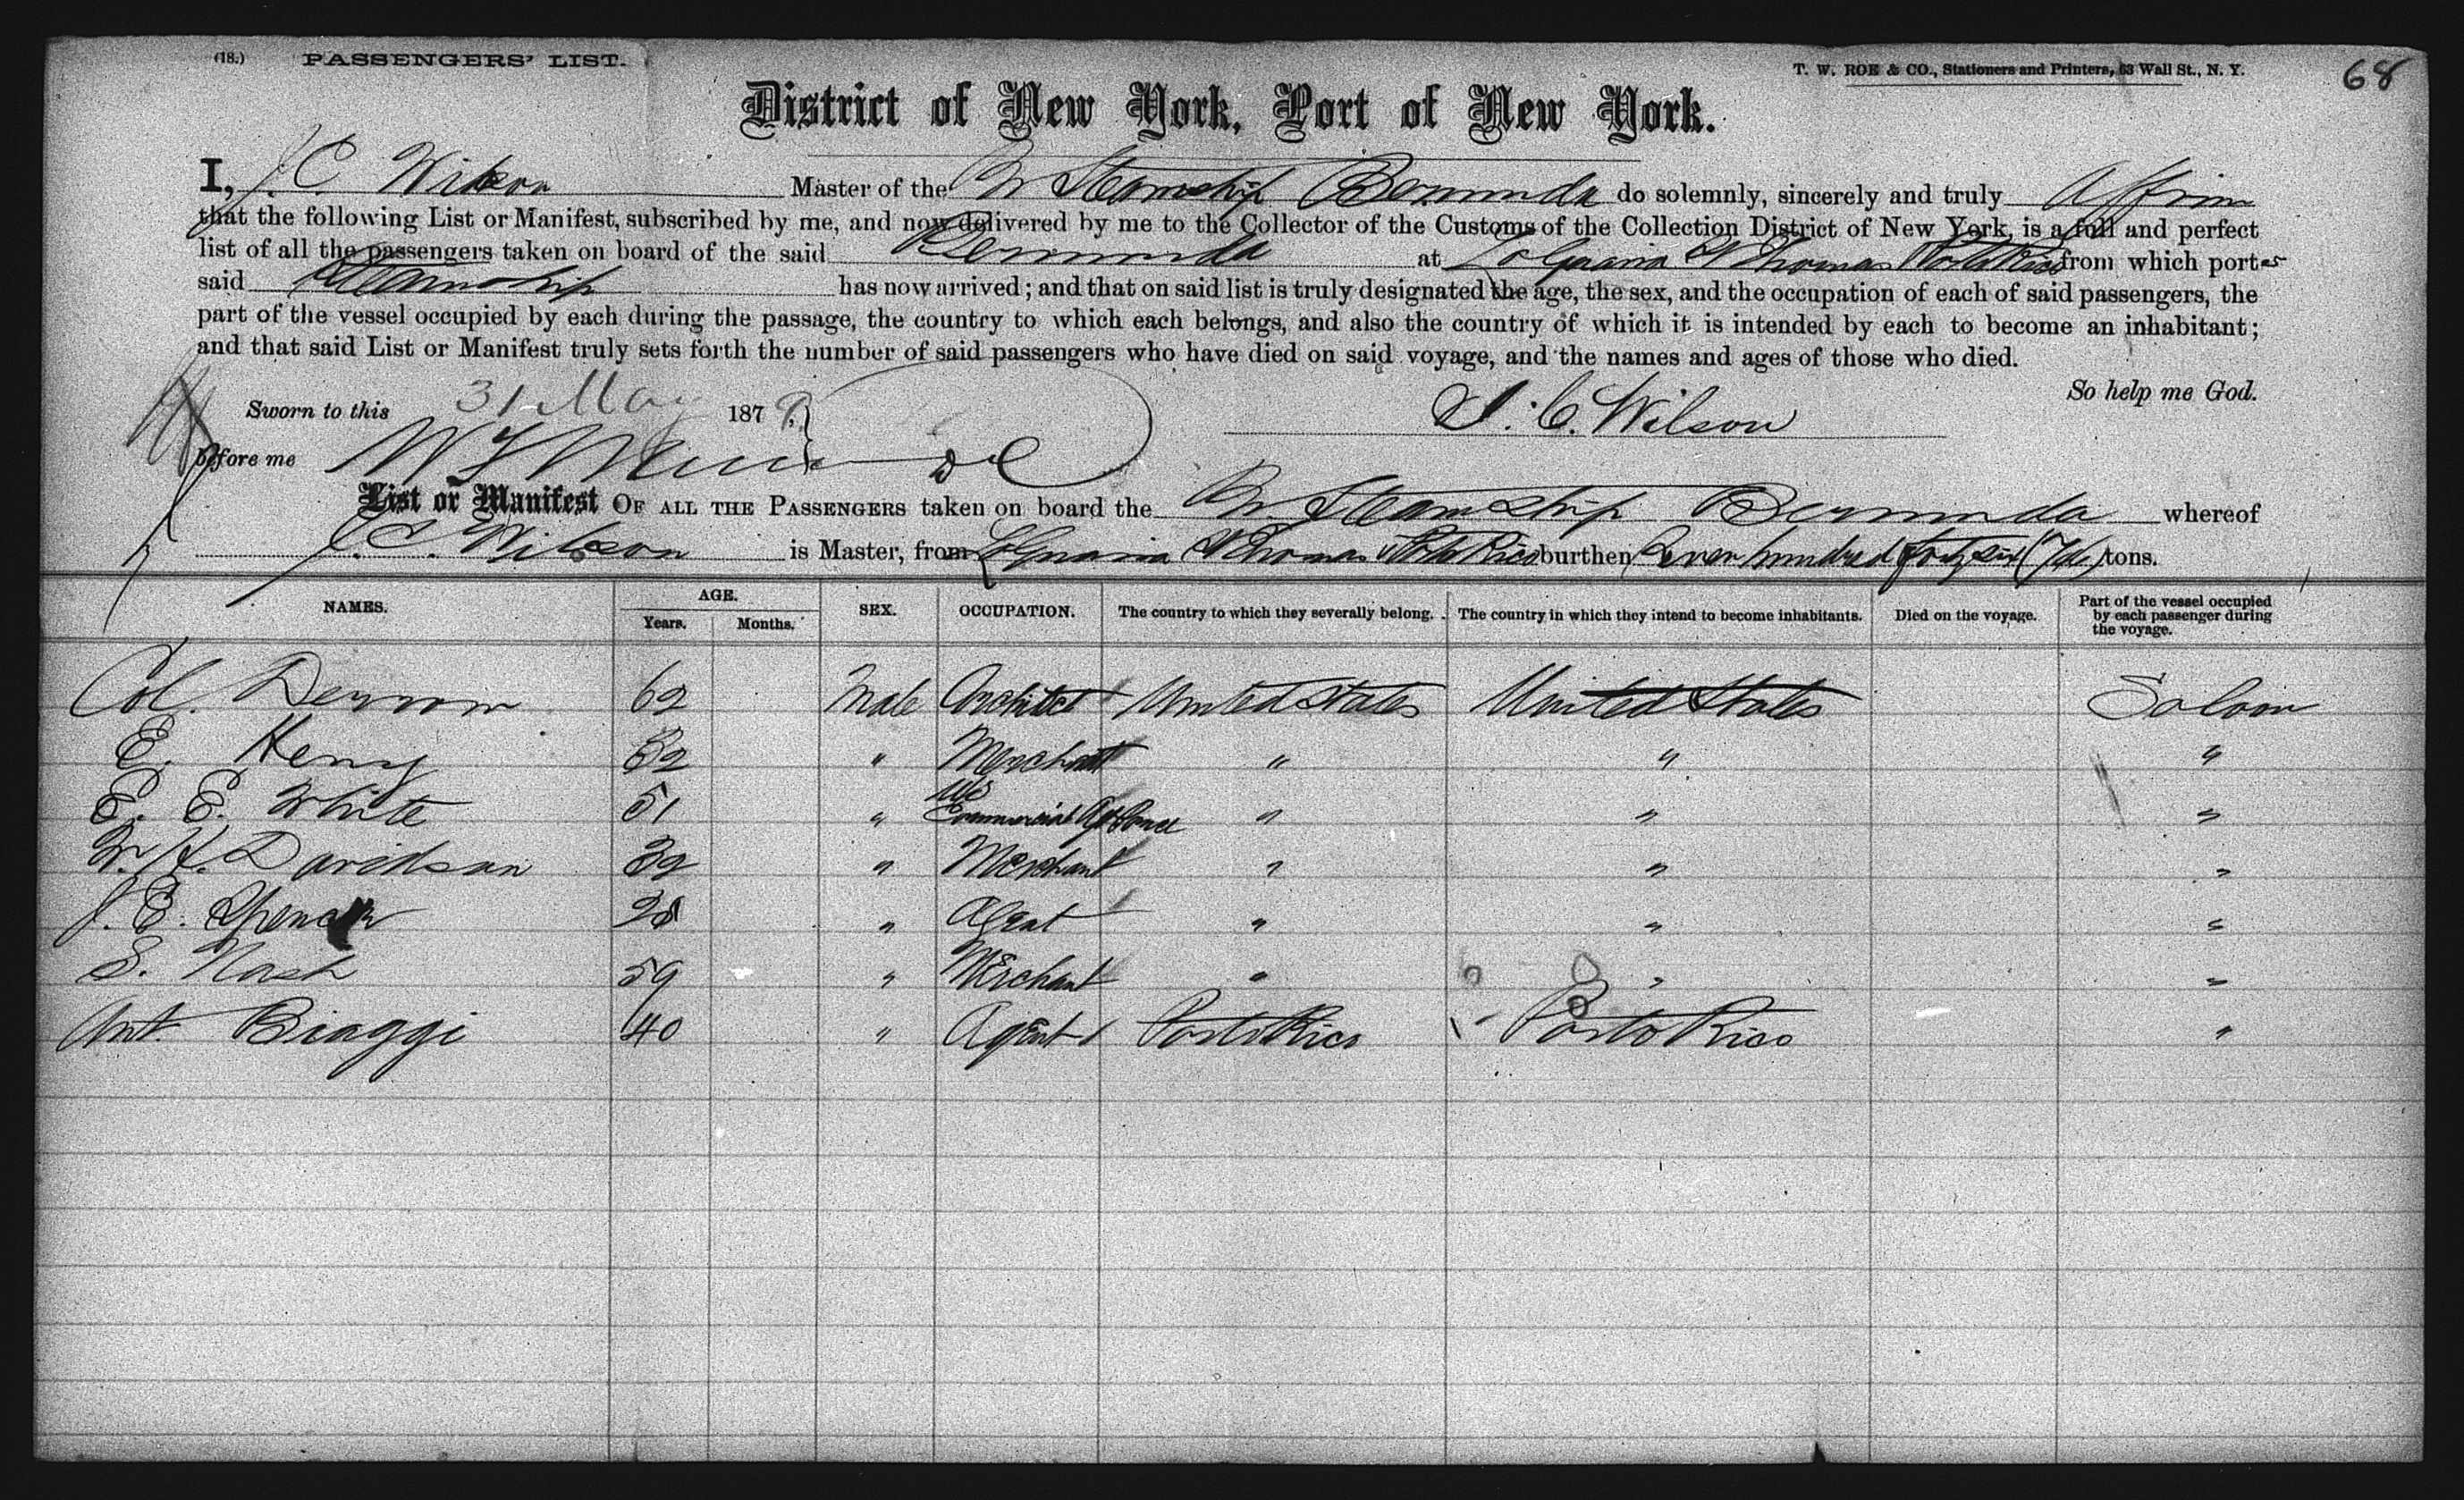 (18.) PASSENGERS' LIST.
T. W. ROE & CO., Stationers and Printers, 63 Wall St., N. Y.
68
District of New York, Port of New York.
I, J. C. Wilson Master of the Br Steamship Bermuda do solemnly, sincerely and truly Affirm
that the following List or Manifest, subscribed by me, and now delivered by me to the Collector of the Customs of the Collection District of New York, is a full and perfect
list of all the passengers taken on board of the said Bermuda at LaGuaira St Thomas Porto Rico from which port es
said Steamship has now arrived; and that on said list is truly designated the age, the sex, and the occupation of each of said passengers, the
part of the vessel occupied by each during the passage, the country to which each belongs, and also the country of which it is intended by each to become an inhabitant;
and that said List or Manifest truly sets forth the number of said passengers who have died on said voyage, and the names and ages of those who died.
So help me God.
Sworn to this 31 May 1879,
J. C. Wilson
before me
List or Manifest OF ALL THE PASSENGERS taken on board the Br Steamship Bermuda whereof
J. C. Wilson is Master, from LaGuaira St Thomas & Porto Rico burthen Seven hundred forty six (746) tons.
NAMES. AGE. Years. Months. SEX. OCCUPATION. The country to which they severally belong. The country in which they intend to become inhabitants. Died on the voyage. Part of the vessel occupied by each passenger during the voyage.
Col. 62 Male Architect United States United States Saloon
E. Henry 52 " Merchant " " "
E. E. White 51 " US Commercial Agt Ponce " " "
W. H. Davidson 32 " Merchant " " "
J. E. Spencer 28 " Agent " " "
S. Nash 59 " Merchant " " "
Ant. Biaggi 40 " Agent Porto Rico Porto Rico "